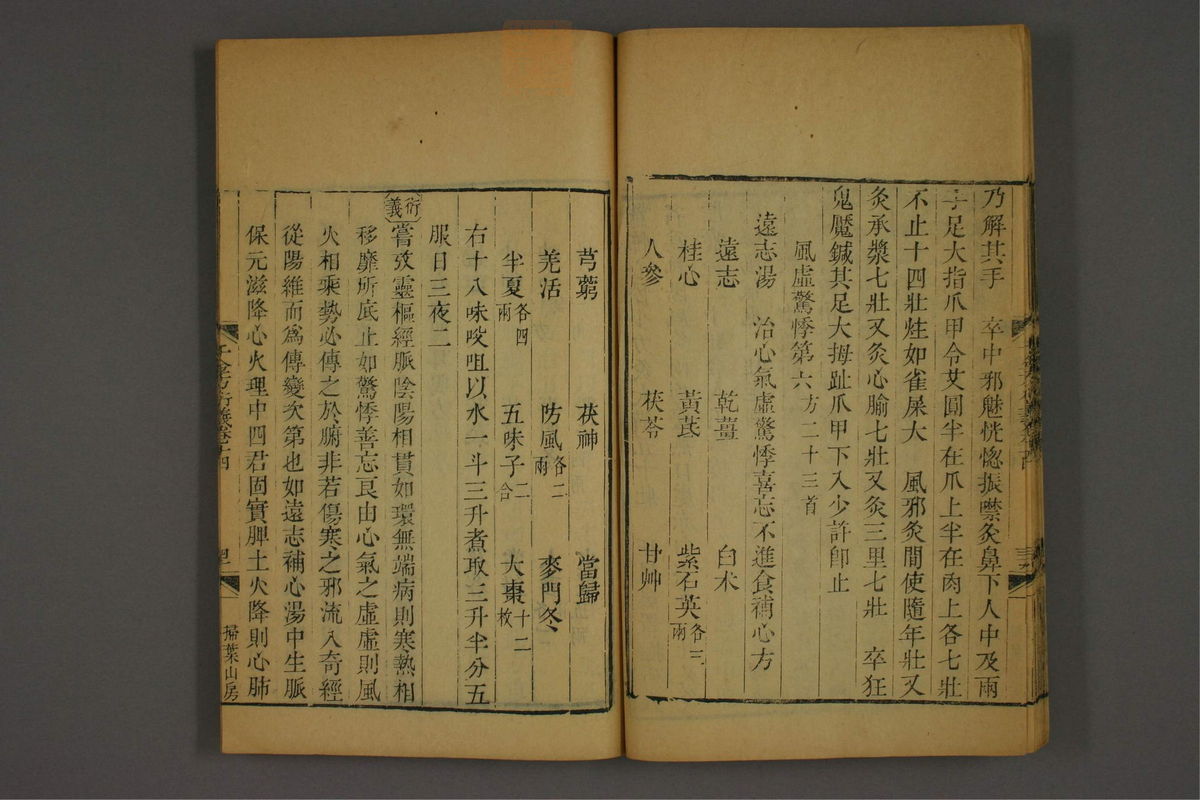 乃解其手　卒中邪魅恍惚振噤灸鼻下人中及兩
手足大指爪甲令艾圓半在爪上半在肉上各七壯
不止十四壯炷如雀屎大　風邪灸間使隨年壯又
灸承漿七壯又灸心腧七壯又灸三里七壯　卒狂
鬼魘鍼其足大拇趾爪甲下入少許卽止
風虛驚悸第六方二十三首
遠志湯　治心氣虛驚悸喜忘不進食補心方
遠志　乾薑　白朮
桂心　黃芪　紫石英各三兩
人參　茯苓　甘艸
芎藭　茯神　當歸
羌活　防風各二兩　麥門冬
半夏各四兩　五味子二合　大棗十二枚
右十八味㕮咀以水一斗三升煮取三升半分五
服日三夜二
衍義
嘗攷靈樞經脈陰陽相貫如環無端病則寒熱相
移靡所底止如驚悸善忘良由心氣之虛虛則風
火相乘勢必傳之於腑非若傷寒之邪流入奇經
從陽維而為傳變次第也如遠志補心湯中生脈
保元滋降心火理中四君固實脾土火降則心肺
千金方衍義卷十四
掃葉山房